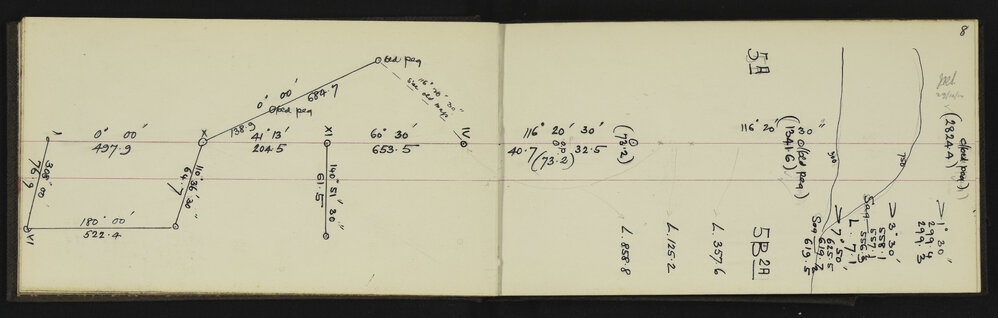 V
0° 00′
497.9
308° 00′
76.9
VI
180° 00′
522.4
X
110° 36′ 30″
64.7
138.9
0° 00′
684.7
Old peg
Old peg
116° 20′ 30″
See old map
41° 13′
204.5
XI
140° 51′ 30″
61.5
60° 30′
653.5
IV
116° 20′ 30″
40.7
32.5
(73.2)
(73.2)
L. 858.8
L. 125.2
L. 357.6
5A
116° 20′ 30″
o/bed peg
(1341G)
5B
2A
8
(2824A)
o/bed peg
1° 30′
299.4
299.3
3° 30′
558.1
557.1
Sag 556.3
L. 7.1
7° 50′
625.5
619.7
Sag 619.5